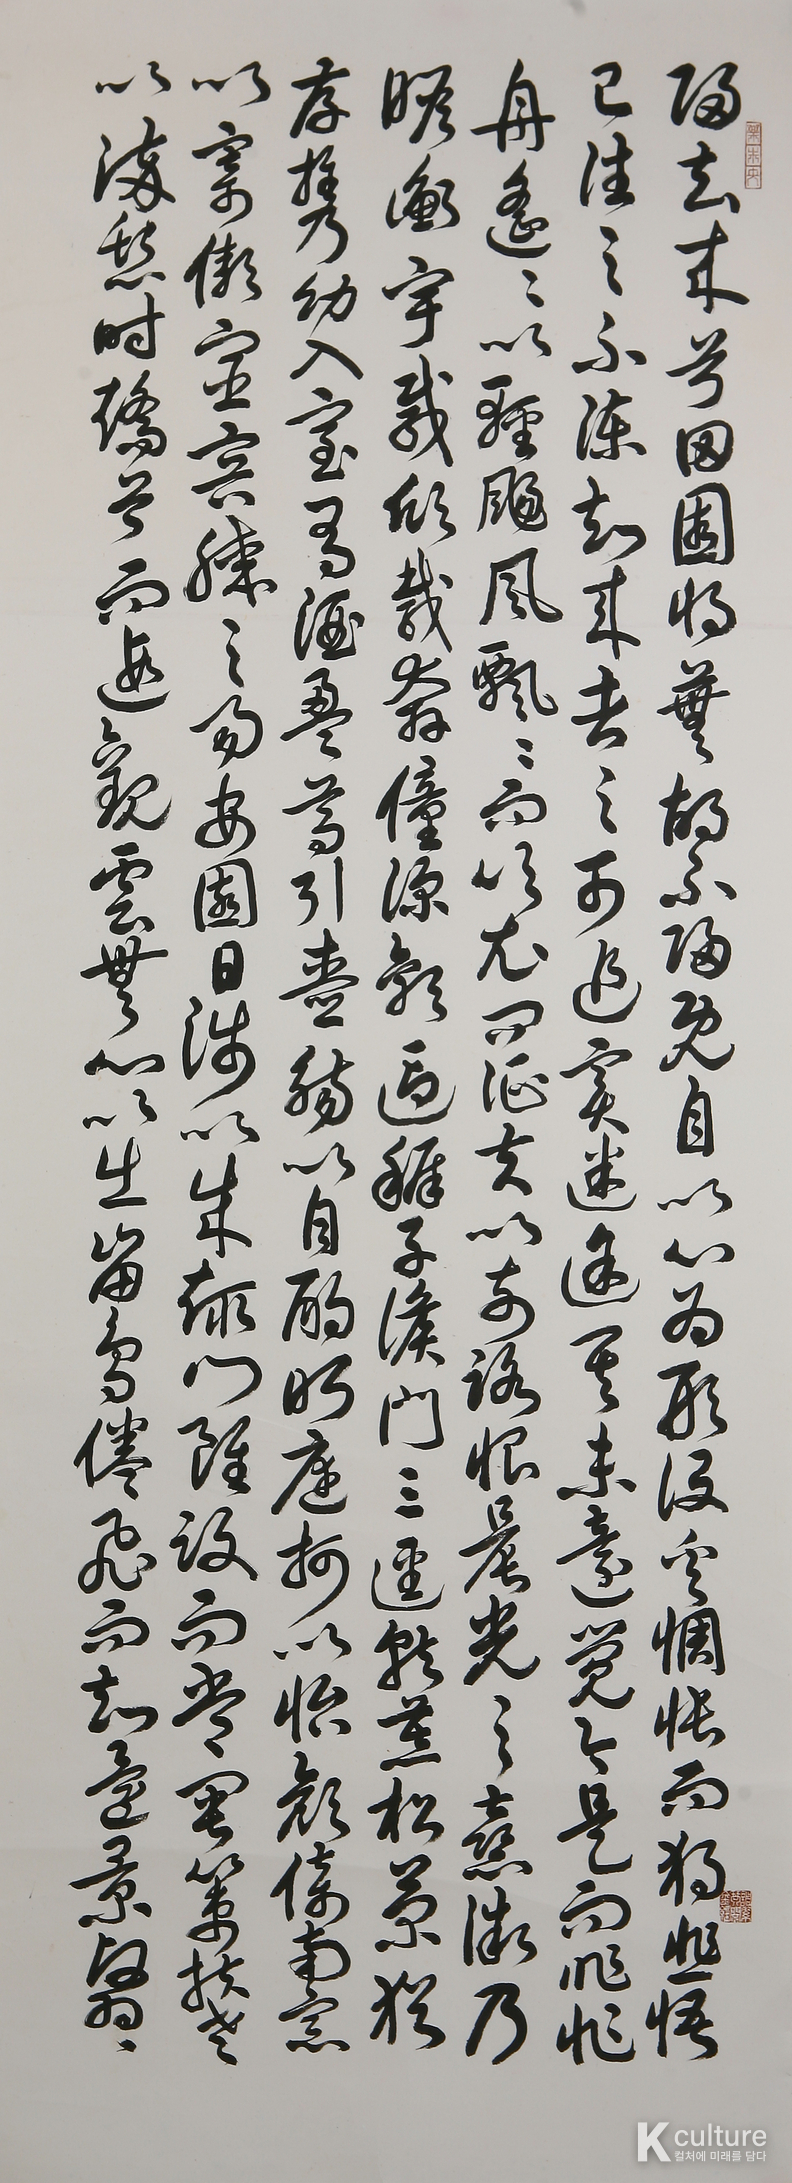 歸去來兮田園將蕪胡不歸既自以心爲形役奚惆悵而獨悲悟
已往之不諫知來者之可追實迷途其未遠覺今是而昨非
舟遙々以輕颺風飄々而吹衣問征夫以前路恨晨光之熹微乃
瞻衡宇載欣載奔僮僕歡迎稚子候門三逕就荒松菊猶
存携幼入室有酒盈樽引壺觴以自酌眄庭柯以怡顔倚南窓
以寄傲審容膝之易安園日涉以成趣門雖設而常關策扶老
以流憩時矯首而遐觀雲無心以出岫鳥倦飛而知還景翳々
K culture
컬처에 미래를 담다